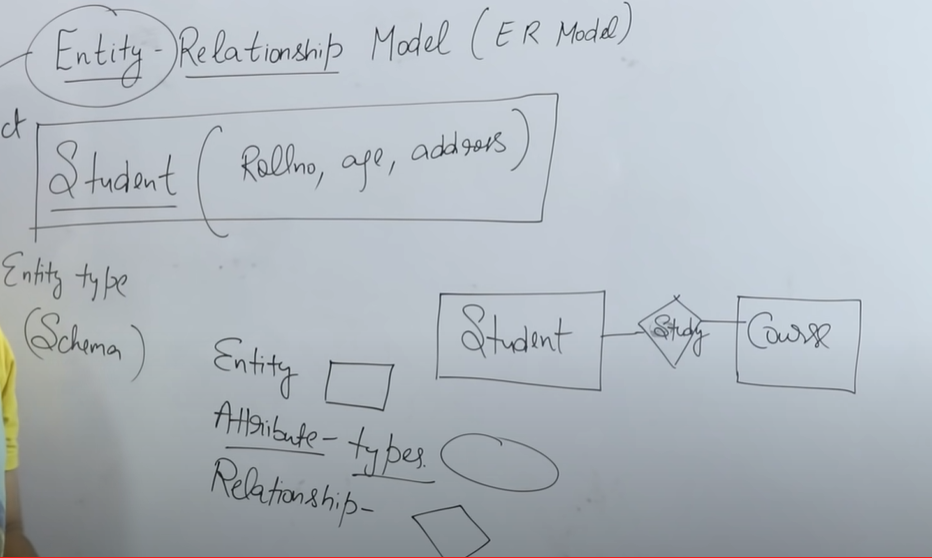 Entity - Relationship Model (ER Model)
ct
Student (Rollno, age, address)
Entity type
(Schema)
Student Study Course
Entity
Attribute - types.
Relationship -